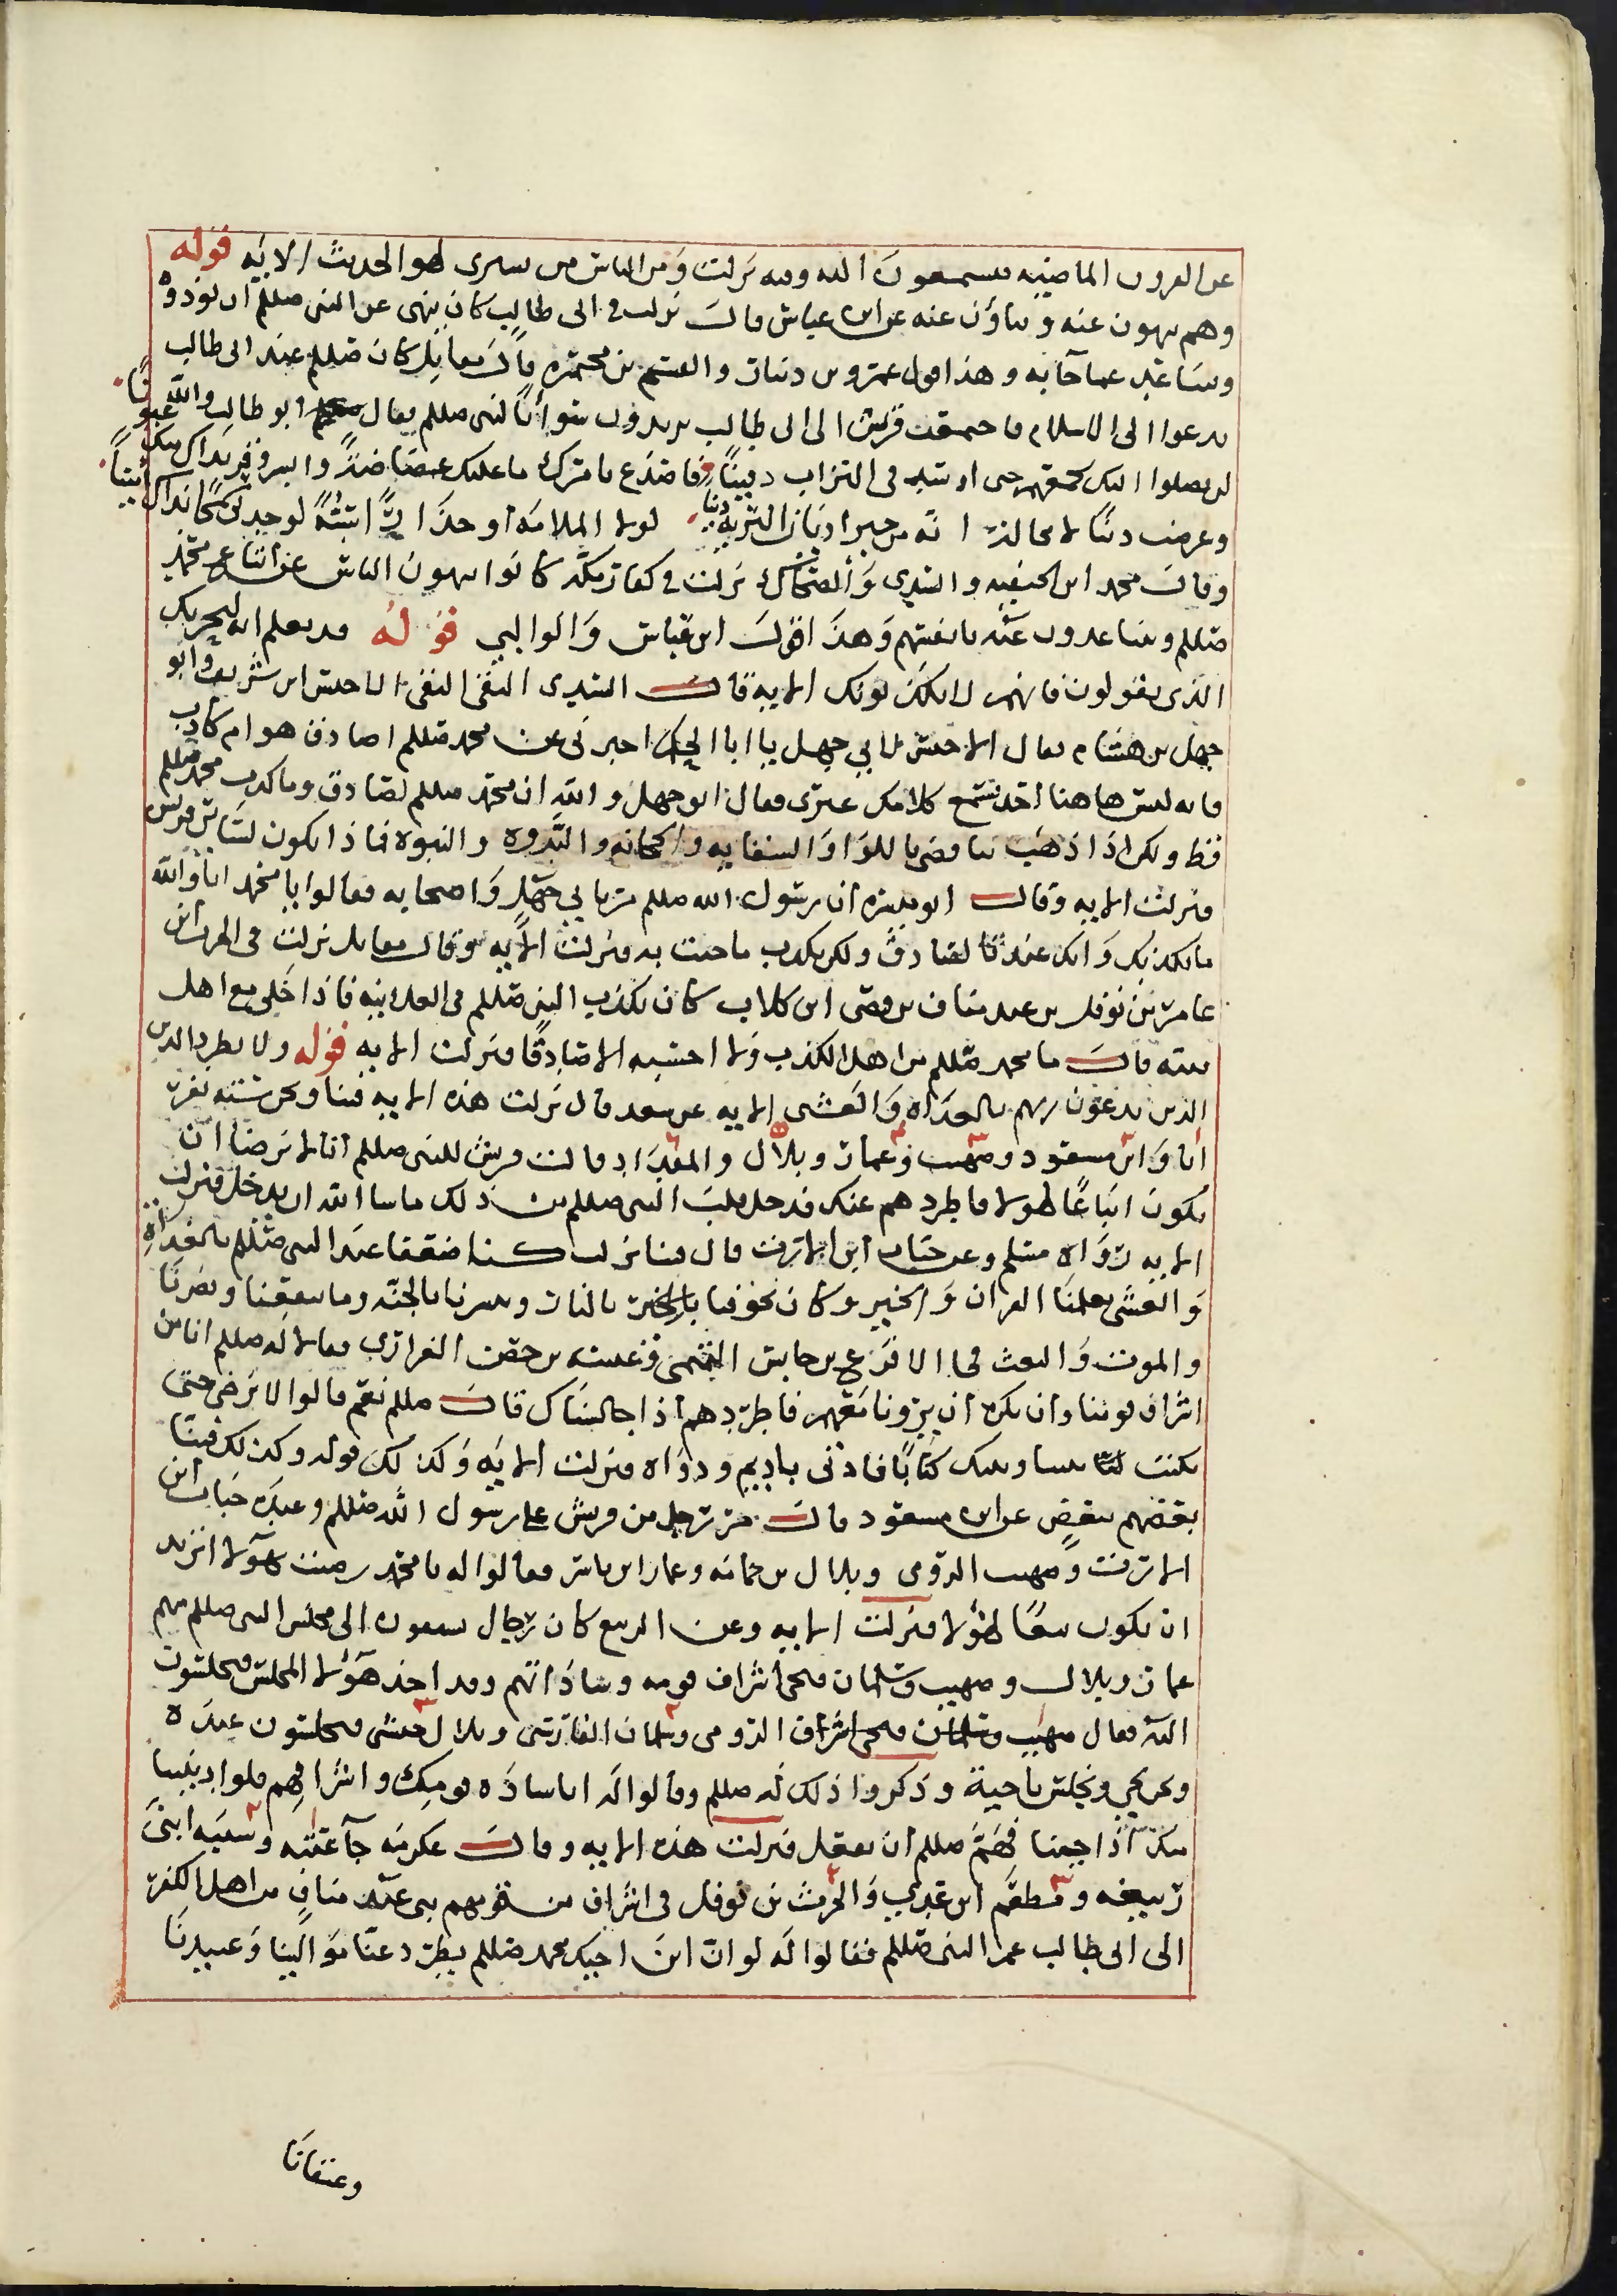 عن القرون الماضيه فيسمعون الله وفيه نزلت ومن الناس من يشتري لهو الحديث الايه قوله
وهم ينهون عنه وينأون عنه عن ابن عباس قال نزلت في ابي طالب كان ينهى عن النبي صللم ان يوذوه
ويتباعد عما جآ به وهذا قول عمرو بن دينار والقسم بن مخيمره قال مقاتل كان صللم عند ابي طالب
يدعوا الى الاسلام فاجتمعت قريش الى ابي طالب يريدون سوأ بالنبي صللم فقال ابو طالب والله
لن يصلوا اليك بجمعهم حتى اوسد في التراب دفينًا فاصدع بامرك ما عليك غضاضة وابشر وقر بذاك منك عيونًا
وعرضت دينًا لا محالة انه من خير اديان البريه دينا لولا الملامه أو حذاري سبة لوجدتني سمحًا بذاك مبينًا
وقال محمد ابن الحنفيه والسدي والضحاك نزلت في كفار مكه كانوا ينهون الناس عن اتباع محمد
صللم ويتباعدون عنه بانفسهم وهذا قول ابن عباس والوالبي قوله قد نعلم انه ليحزنك
الذي يقولون فانهم لا يكذبونك الايه قال السدي التقى الاخنس ابن شريق وابو
جهل بن هشام فقال الاخنس لابي جهل يا ابا الحكم اخبرني عن محمد صللم اصادق هو ام كاذب
فانه ليس هاهنا احد يسمع كلامك غيري فقال ابو جهل والله ان محمد صللم لصادق وما كذب محمد صللم
قط ولكن اذا ذهب بنا قصي باللوا والسقايه والحجابه والندوه والنبوه فماذا يكون لساير قريش
فنزلت الايه وقال ابو ميسره ان رسول الله صللم مر بابي جهل واصحابه فقالوا يا محمد انا والله
ما نكذبك وانك عندنا لصادق ولكن نكذب ما جئت به فنزلت الايه وقال مقاتل نزلت في الحرث ابن
عامر بن نوفل بن عبد مناف بن قصي ابن كلاب كان يكذب النبي صللم في العلانيه فاذا خلى مع اهل
بيته قال ما محمد صللم من اهل الكذب ولا احسبه الا صادقًا فنزلت الايه قوله ولا تطرد الذين
الذين يدعون ربهم بالغداه والعشي الايه عن سعد قال نزلت هذه الايه فينا ونحن سته نفر
انا وابن مسعود وصهيب وعمار وبلال والمقداد قالت قريش للنبي صللم انا لا نرضا ان
نكون اتباعًا لهولا فاطردهم عنك فدخل قلب النبي صللم من ذلك ما شا الله ان يدخل فنزلت
الايه رواه مسلم وعن خباب ابن الارت قال فينا نزلت كنا ضعفا عند النبي صللم بالغداة
والعشي يعلمنا القران والخير وكان يخوفنا بالنار ويبشرنا بالجنه وما ينفعنا ويضرنا
والموت والبعث فجا الاقرع بن حابس التميمي وعيينه بن حصن الفزاري فقالا له صللم انا من
اشراف قومنا وان نكره ان يرونا معهم فاطردهم اذا جالسناك قال صللم نعم قالوا لا نرضى حتى
نكتب بيننا وبينك كتابًا فاذنى باديم ودواه فنزلت الايه وكذلك قوله وكذلك فتنا
بعضهم ببعض عن ابن مسعود قال مر رجل من قريش على رسول الله صللم وعنده خباب ابن
الارت وصهيب الرومى وبلال بن حمامه وعمار ابن ياسر فقالوا له يا محمد رضيت بهآولا اتريد
ان نكون تبعًا لهؤلا فنزلت الايه وعن الربيع كان رجال يسبقون الى مجلس النبي صللم منهم
عمار وبلال وصهيب وسلمان فيجى اشراف قومه وساداتهم وقد اخذ هؤلا المجلس فيجلسون
اليه فقال صهيب الرومى وسلمان الفارسي وبلال حبشي يجلسون عنده
ونحن نجي ونجلس ناحية وذكروا ذلك له صللم وقالوا له انا ساده قومك واشرافهم فلوا دنيتنا
منك اذا جينا فهم صللم ان يفعل فنزلت هذه الايه وقال عكرمه جآ عتبه وشيبه ابنى
ربيعه ومطعم ابن عدي والحرث بن نوفل في اشراف من قومهم بني عبد مناف من اهل الكفر
الى ابي طالب عم النبي صللم فقالوا له لو ان ابن اخيك محمد صللم يطرد عنا موالينا وعبيدنا
وعتقانا